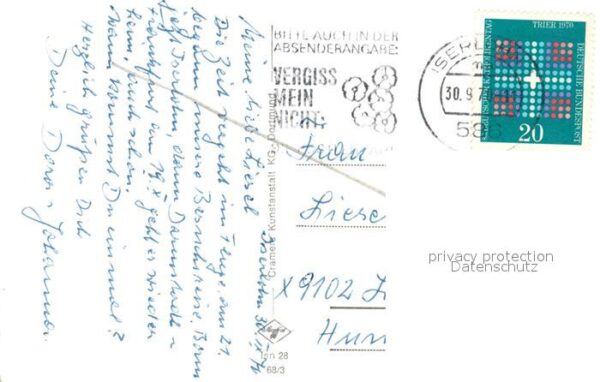 BITTE AUCH IN DER
ABSENDERANGABE:
VERGISS
MEIN
NICHT:
ISERL
30.9.7
586
TRIER 1970
DEUTSCHER KATHOLIKENTAG
DEUTSCHE BUNDESPOST
20
Iserlohn 30. IX 70
Meine liebe Liesel
Die Zeit vergeht im Fluge, am 21.
begann unsere Reise, Bonn
jetzt Iserlohn, dann Darmstadt u
Frankfurt, am 19. X geht es wieder
heim,
Wann kommst Du einmal?
Herzlich grüßen Dich
Deine Doro u Johanna.
Cramers Kunstanstalt KG · Dortmund
Isn 28
68/3
Frau
Liese
X 9102 L
privacy protection
Datenschutz